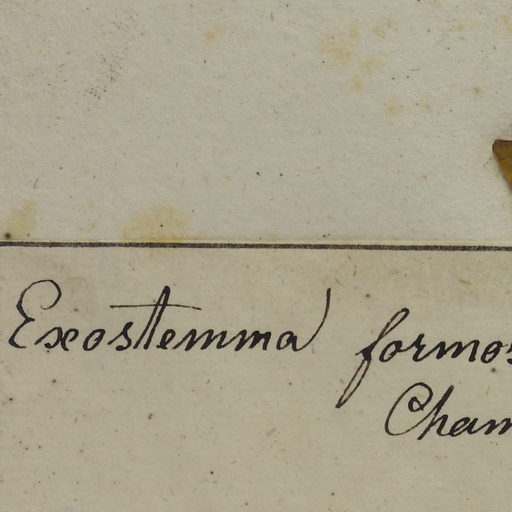 Exostemma formos
Cham